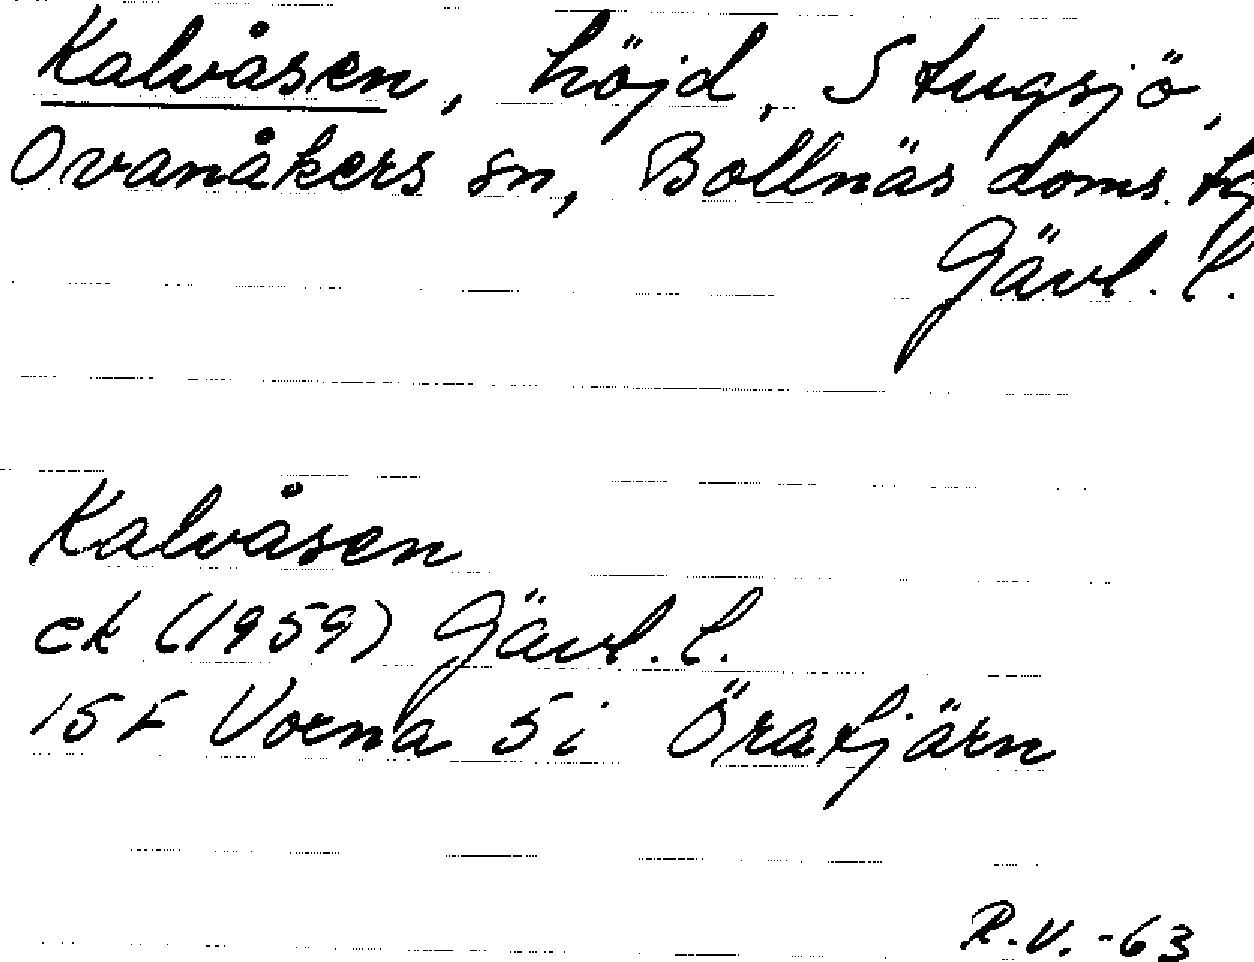 Kalvåsen, höjd, Stugsjö,
Ovanåkers sn, Bollnäs doms. tg
Gävl. l.
Kalvåsen
ek (1959) Gävl. l.
15 F Voxna 5 i Öratjärn
R.V. -63